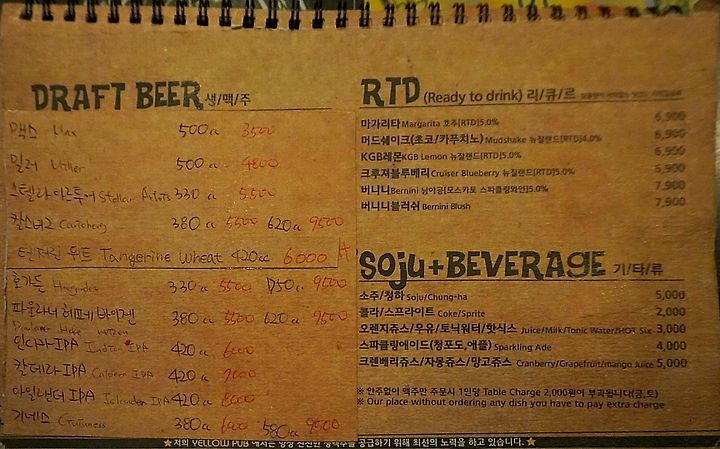 DRAFT BEER 생/맥/주
맥스 Max 500cc 3500
밀러 Miller 500cc 4800
스텔라아르투어 Stellar Artois 330cc 5500
칼스버그 Carlsberg 380cc 5500 620cc 9500
텐저린 위트 Tangerine Wheat 420cc 6000
호가든 Hoegaarden 330cc 5500 750cc 9000
파울라너 헤페 바이젠 380cc 5500 620cc 9500
인디카 IPA Indica IPA 420cc 6000
칼데라 IPA Caldera IPA 420cc 7000
아일랜더 IPA Islander IPA 420cc 8000
기네스 Guinness 380cc 580cc 9500
RTD (Ready to drink) 리/큐/르
마가리타 Margarita 호주[RTD]5.0% 6,900
머드쉐이크(초코/카푸치노) Mudshake 뉴질랜드[RTD]4.0% 6,900
KGB레몬 KGB Lemon 뉴질랜드[RTD]5.0% 6,900
크루져블루베리 Cruiser Blueberry 뉴질랜드[RTD]5.0% 6,900
버니니 Bernini 남아공[모스카토 스파클링와인]5.0% 7,900
버니니블러쉬 Bernini Blush 7,900
SOJU+BEVERAGE 기/타/류
소주/청하 Soju/Chung-ha 5,000
콜라/스프라이트 Coke/Sprite 2,000
오렌지쥬스/우유/토닉워터/핫식스 Juice/Milk/Tonic Water/HOT Six 3,000
스파클링에이드(청포도,애플) Sparkling Ade 4,000
크렌베리쥬스/자몽쥬스/망고쥬스 Cranberry/Grapefruit/mango Juice 5,000
※ 안주없이 맥주만 주문시 1인당 Table Charge 2,000원이 부과됩니다(금,토)
※ Our place without ordering any dish you have to pay extra charge
★ 저희 YELLOW PUB 에서는 항상 신선한 생맥주를 공급하기 위해 최선의 노력을 하고 있습니다. ★